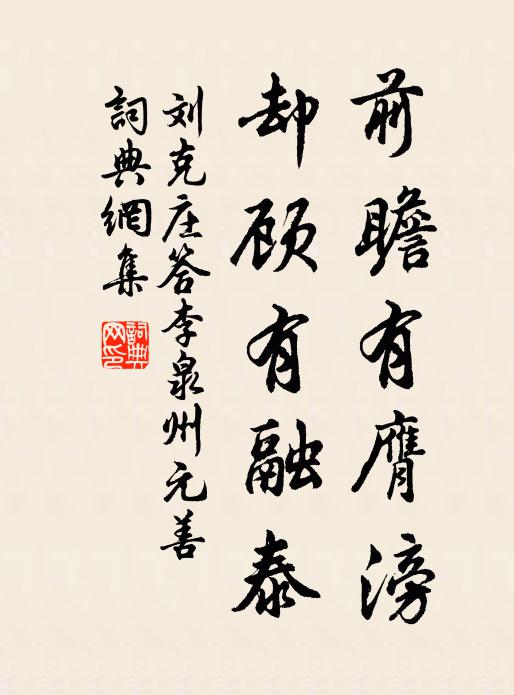 前瞻有膺滂
却顾有融泰
刘克庄答李泉州元善
詞典網集
詞典網印